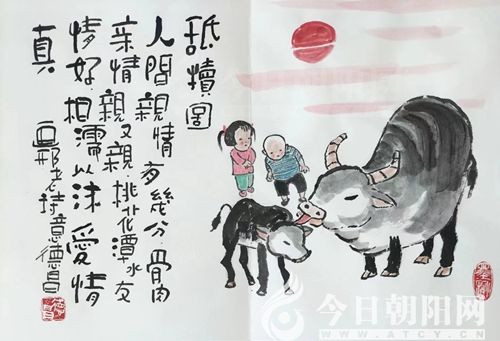 舐犢圖
人間親情有幾分.骨肉
亲情親又親.桃花潭水友
情好.相濡以沫愛情
真
邢老詩意德昌
今日朝阳网
WWW.ATCY.CN